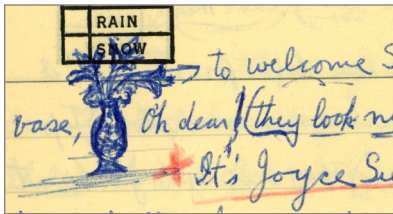 RAIN
SNOW
to welcome S
vase, Oh dear! (they look
It's Joyce Su